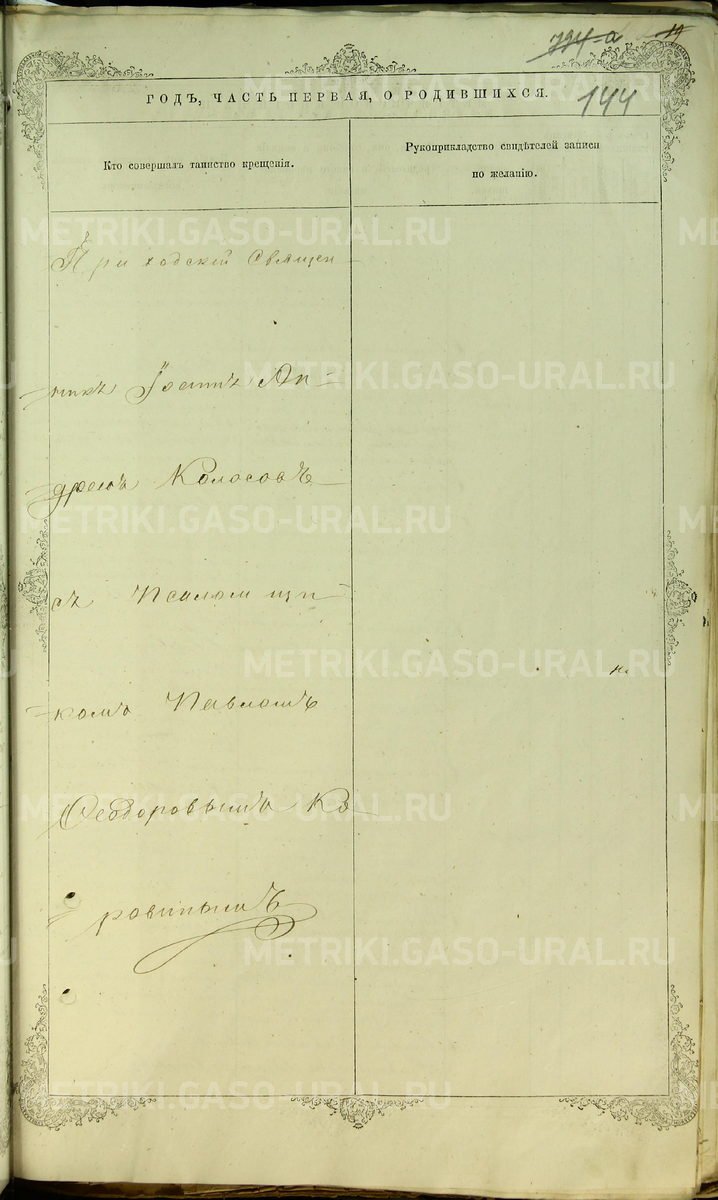 794-а
144
ГОДЪ, ЧАСТЬ ПЕРВАЯ, О РОДИВШИХСЯ.
Кто совершалъ таинство крещенія.
Рукоприкладство свидѣтелей записи
по желанію.
Приходскій Священ-
-никъ Іоаннъ Ан-
-дреевъ Колосовъ
съ Псаломщи-
-комъ Павломъ
Ѳеодоровымъ
METRIKI.GASO-URAL.RU